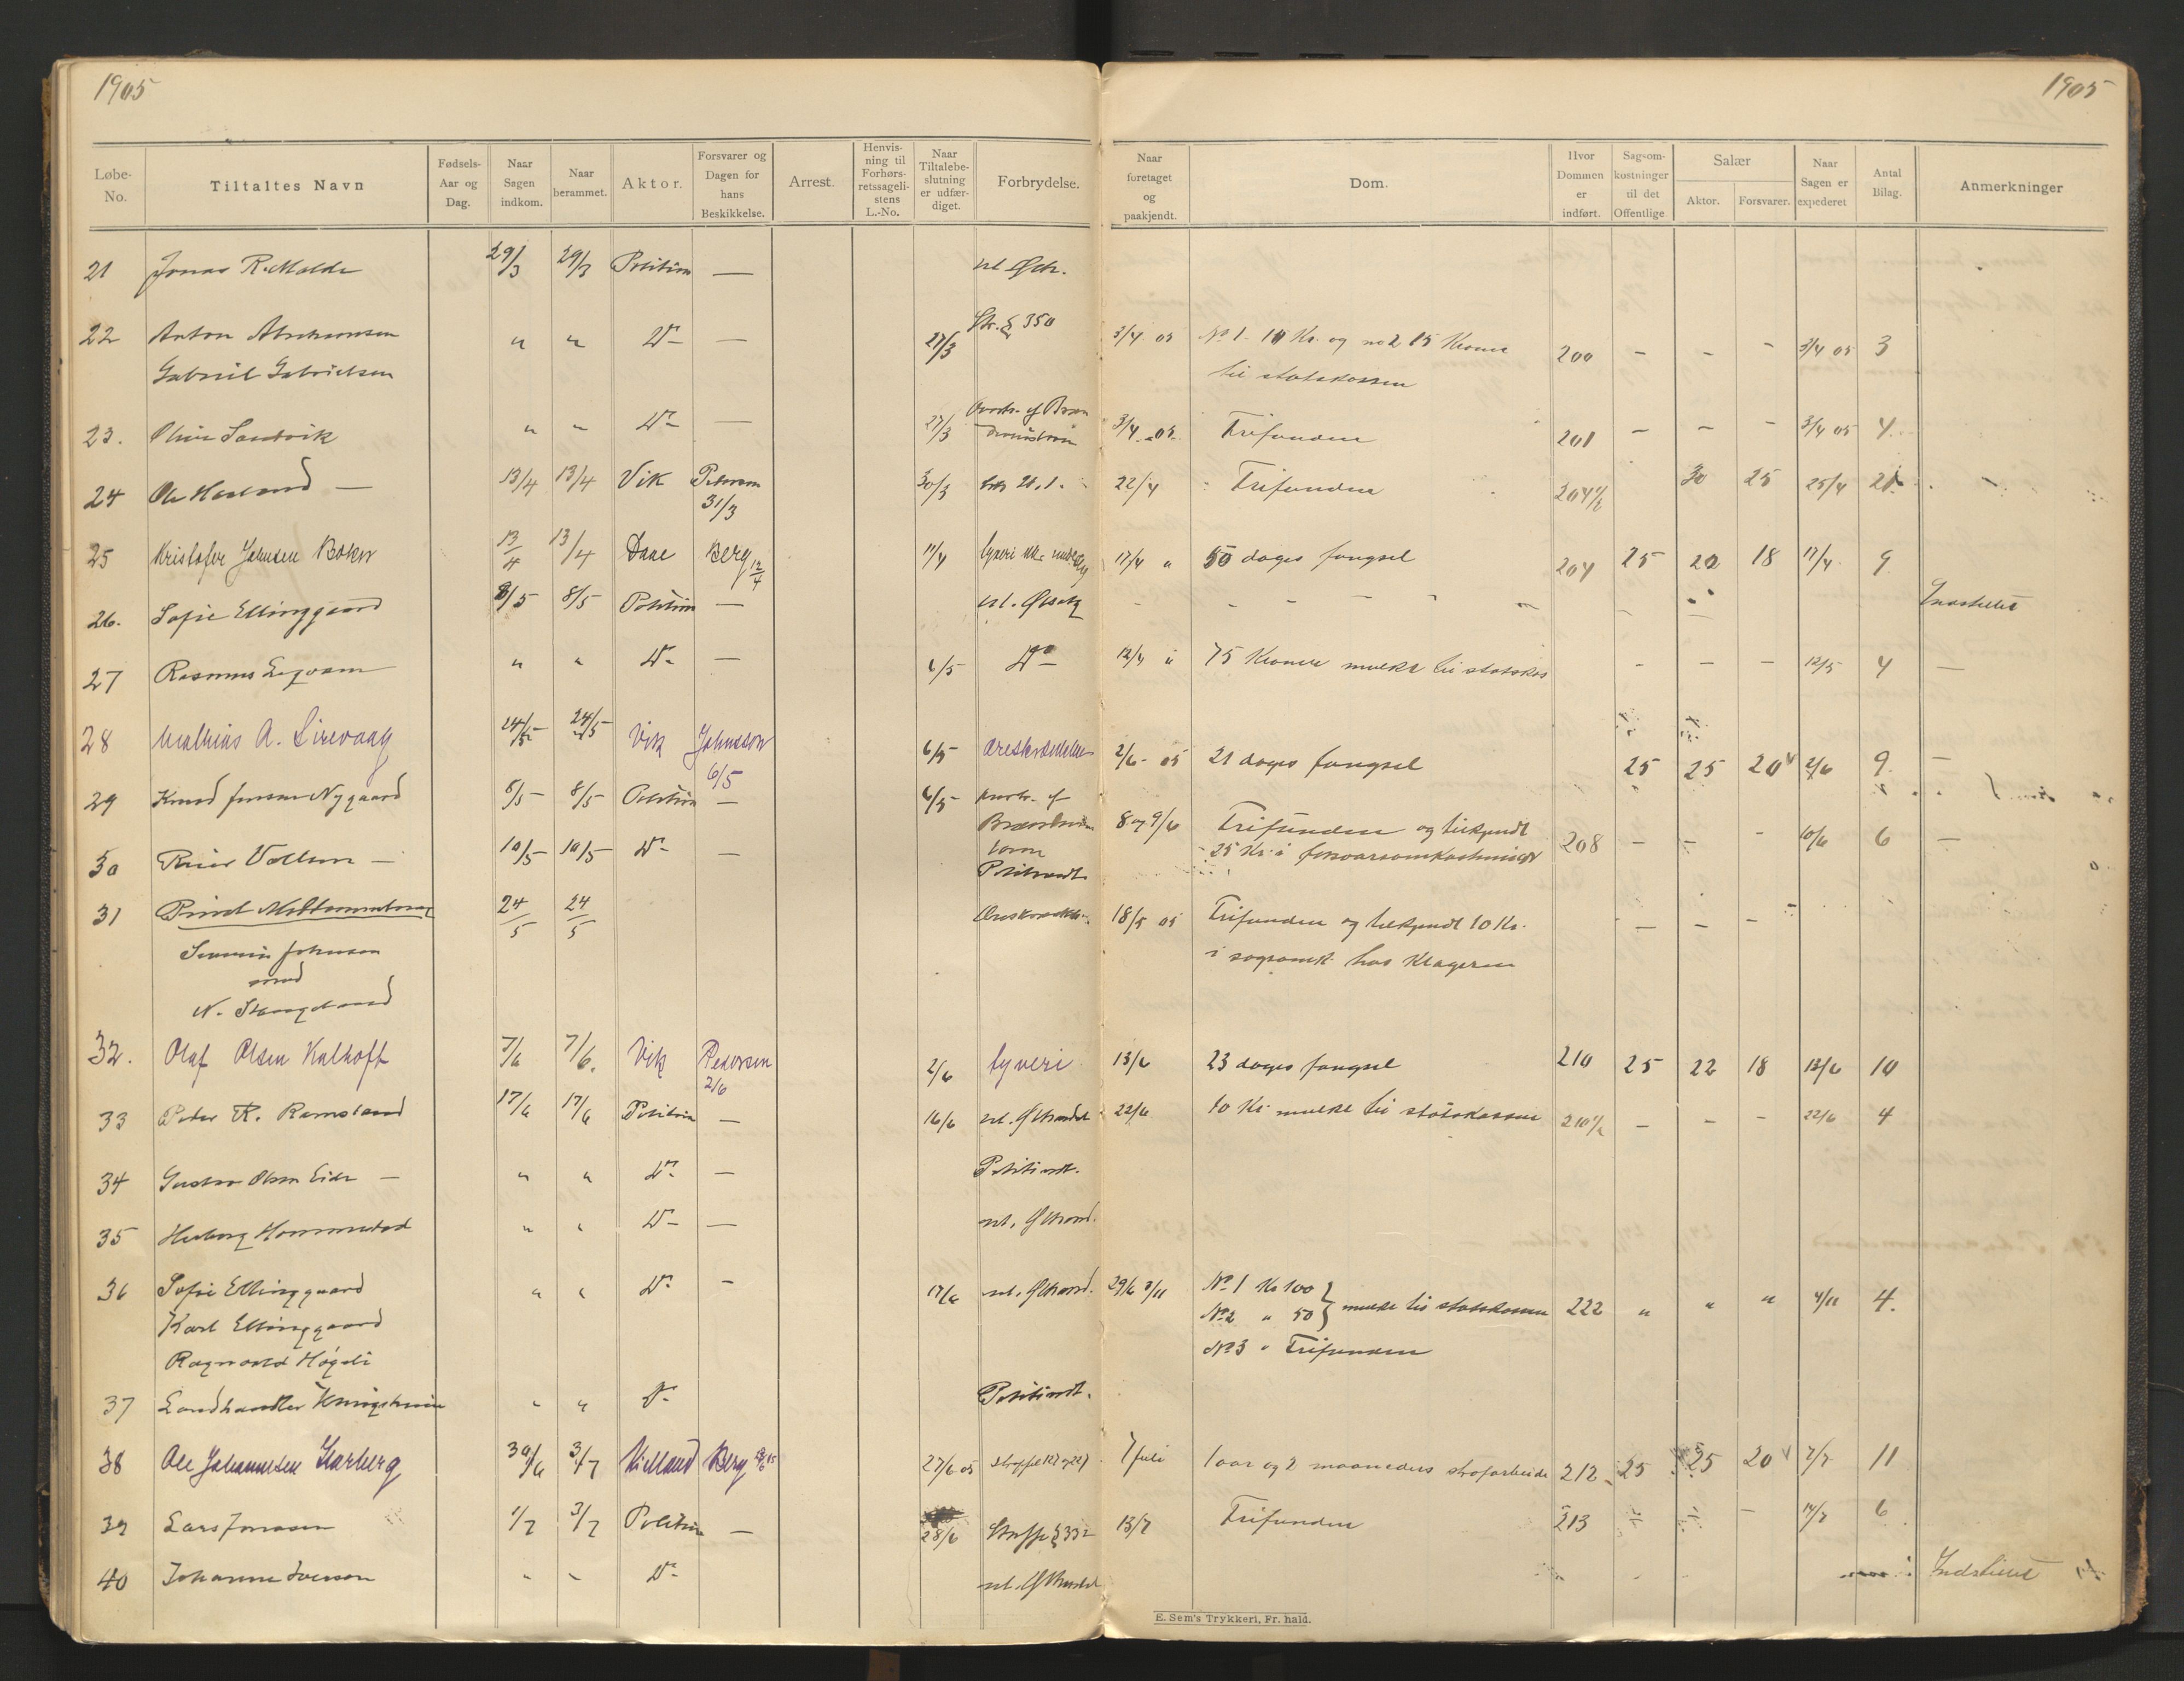 1905
1905
Løbe-No.
Tiltaltes Navn
Fødsels-Aar og Dag.
Naar Sagen indkom.
Naar berammet.
Aktor.
Forsvarer og Dagen for hans Beskikkelse.
Arrest.
Henvisning til Forhørsretssagelistens L.-No.
Naar Tiltalebeslutning er udfærdiget.
Forbrydelse.
Naar foretaget og paakjendt.
Dom.
Hvor Dommen er indført.
Sagsomkostninger til det Offentlige
Salær
Aktor.
Forsvarer.
Naar Sagen er expederet
Antal Bilag.
Anmerkninger
21 Jonas R. Molde 29/3 29/3 Politiet —
22 Anton Abrahamsen " " Do — 27/3 Str. § 350 3/4 05 No 1. 10 Kr. og no 2 15 Kroner 200 — — — 3/4 05 3
Gabriel Gabrielsen til statskassen
23. Oliver Sandvik " " Do — 27/3 3/4 05 Frifunden 201 — — — 3/4 05 4.
24 Ole Haaland — 13/4 13/4 Vik Petersen 31/3 30/3 22/4 Frifunden 30 25 25/4
25 Kristofer Johnsen Bokn 13/4 13/4 Daae Berg 12/4 11/4 tyveri 17/4 " 50 dages fængsel 204 25 20 18 17/4 9
26. Sofie Ellinggaard 8/5 8/5 Politiet — Indstillet
27 Rasmus " " Do — 6/5 Do 12/4 " 75 Kroner mulkt til statskas — — — 12/5 4 —
28 Mathias A. Sirevaag 24/5 24/5 Vik Johnsson 6/5 6/5 æreskrænkelse 2/6 - 05 21 dages fængsel 25 25 20 2/6 9. —
29 Knud Jensen Nygaard 8/5 8/5 Politiet — 6/5 8 og 9/6 Frifunden og tilkjendt 208 — — — 10/6 6 —
25 Kr. i forsvarsomkostninger
30 Vollum — 10/5 10/5 Do — Politivedt.
31 24/5 24/5 18/5 05 Frifunden og tilkjendt 10 Kr. — — —
Johnson i sagsomk. hos Klageren
mod
N.
32. Olaf Olsen Kalhoft 7/6 7/6. Vik Pedersen 2/6 2/6 tyveri 13/6 23 dages fængsel 210 25 22 18 13/6 10
33 Peder R. Ramsland 17/6 17/6 Politiet — 16/6 22/6 10 Kr. mulkt til statskassen — — — 22/6 4
34 Gustav Olsen Eide — " " Do — Politivedt.
35 Herborg " " Do —
36 Sofie Ellinggaard " " Do — 17/6 29/6 3/11 No 1 Kr 100
Karl Ellinggaard No 2 " 50 } mulkt til statskassen 222 " " " 4/11 4.
Ragnvald No 3 " Frifunden
37 Landhandler " " Do Politivedt.
38 Ole Johannesen Karberg 30/6 3/7 Kielland Berg 27/6 05 7 juli 1 aar og 2 maaneders strafarbeide 212 25 25 20 7/7 11
39 Lars Jonassen 1/7 3/7 Politiet — 28/6 Straffel § 332 13/7 Frifunden 213 — 6
40 Johanne Iversen " " Do Indstillet
E. Sem's Trykkeri, Fr. hald.